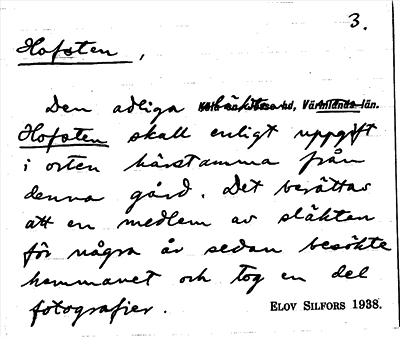 3.
Hofsten,
Den adliga släkten
Hofsten skall enligt uppgift
i orten härstamma från
denna gård. Det berättas
att en medlem av släkten
för några år sedan besökte
hemmanet och tog en del
fotografier. ELOV SILFORS 1938.